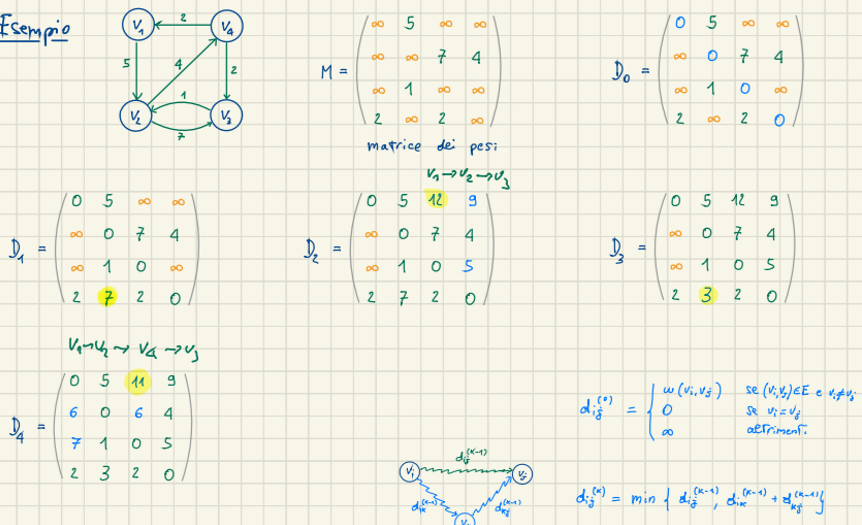 Esempio
V₁ 2 V₄
5 4 2
1
V₂ V₃
7
M =
∞ 5 ∞ ∞
∞ ∞ 7 4
∞ 1 ∞ ∞
2 ∞ 2 ∞
matrice dei pesi
D₀ =
0 5 ∞ ∞
∞ 0 7 4
∞ 1 0 ∞
2 ∞ 2 0
D₁ =
0 5 ∞ ∞
∞ 0 7 4
∞ 1 0 ∞
2 7 2 0
V₁→V₂→V₃
D₂ =
0 5 12 9
∞ 0 7 4
∞ 1 0 5
2 7 2 0
D₃ =
0 5 12 9
∞ 0 7 4
∞ 1 0 5
2 3 2 0
V₁→V₂→V₄→V₃
D₄ =
0 5 11 9
6 0 6 4
7 1 0 5
2 3 2 0
dᵢⱼ⁽ᵏ⁻¹⁾
vᵢ vⱼ
dᵢₖ⁽ᵏ⁻¹⁾ dₖⱼ⁽ᵏ⁻¹⁾
dᵢⱼ⁽⁰⁾ =
w(vᵢ,vⱼ) se (vᵢ,vⱼ)∈E e vᵢ≠vⱼ
0 se vᵢ=vⱼ
∞ altrimenti
dᵢⱼ⁽ᵏ⁾ = min { dᵢⱼ⁽ᵏ⁻¹⁾, dᵢₖ⁽ᵏ⁻¹⁾ + dₖⱼ⁽ᵏ⁻¹⁾}